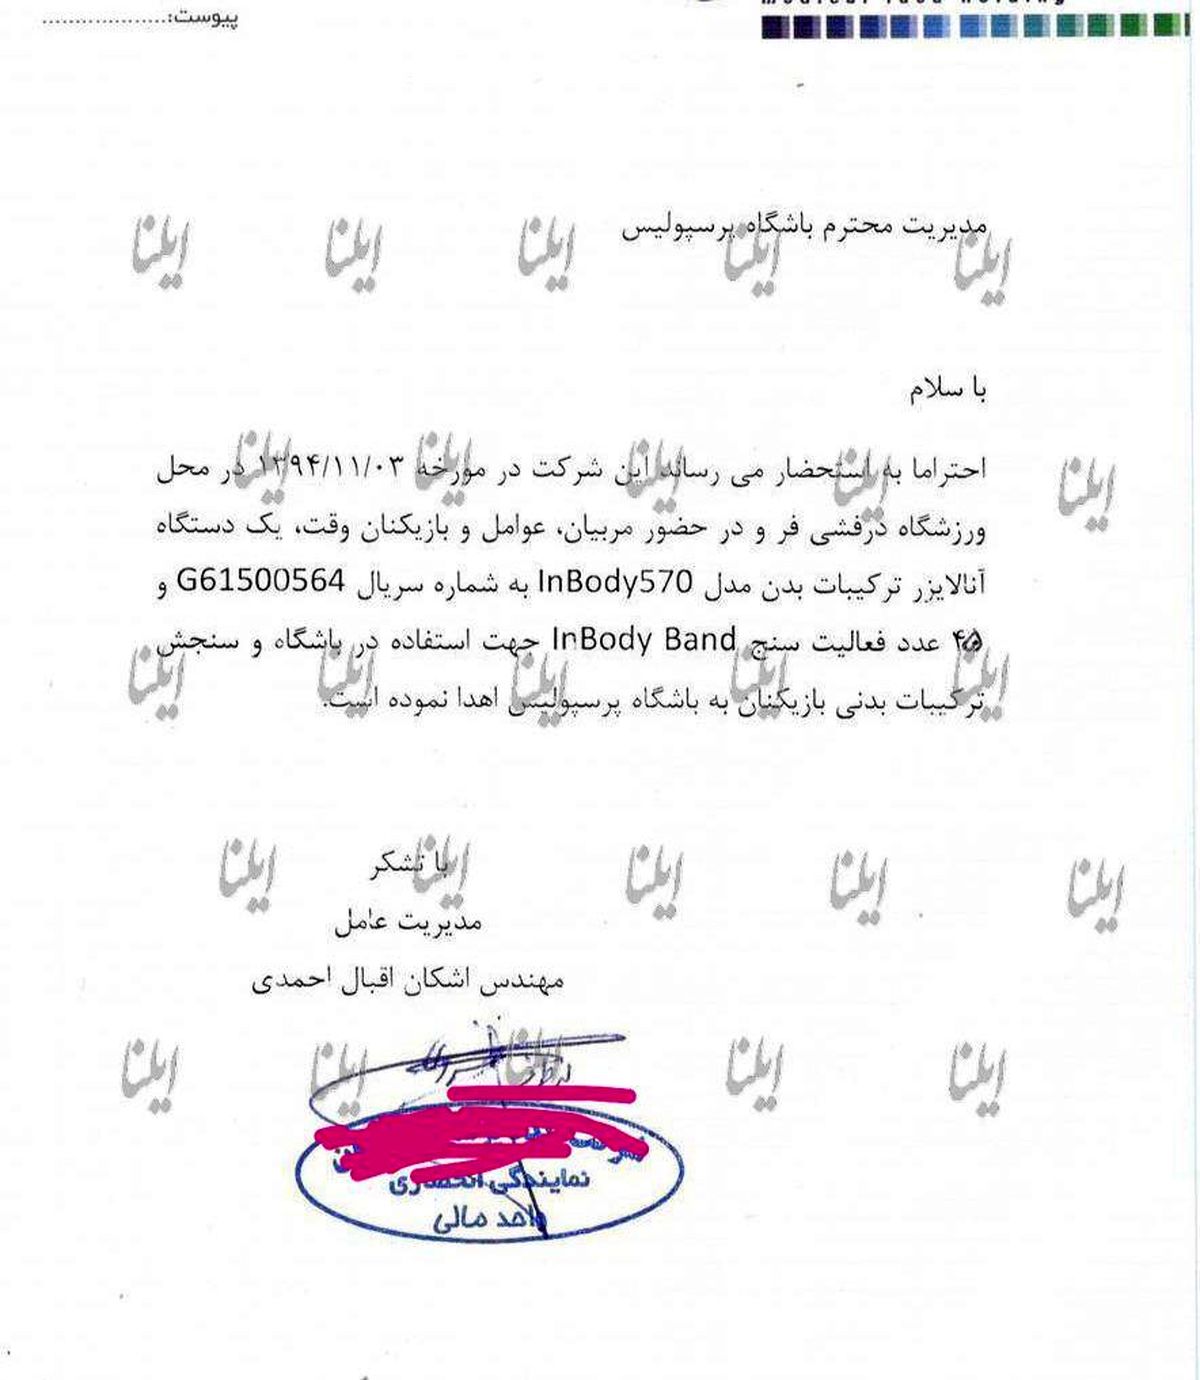 پیوست:...................
مدیریت محترم باشگاه پرسپولیس
با سلام
احتراما به استحضار می رساند این شرکت در مورخه ۱۳۹۴/۱۱/۰۳ در محل
ورزشگاه درفشی فر و در حضور مربیان، عوامل و بازیکنان وقت، یک دستگاه
آنالایزر ترکیبات بدن مدل InBody570 به شماره سریال G61500564 و
۴۵ عدد فعالیت سنج InBody Band جهت استفاده در باشگاه و سنجش
ترکیبات بدنی بازیکنان به باشگاه پرسپولیس اهدا نموده است.
با تشکر
مدیریت عامل
مهندس اشکان اقبال احمدی
نمایندگی انحصاری
واحد مالی
ایلنا ایلنا ایلنا ایلنا ایلنا
ایلنا ایلنا ایلنا ایلنا ایلنا
ایلنا ایلنا ایلنا ایلنا ایلنا
ایلنا ایلنا ایلنا ایلنا ایلنا
ایلنا ایلنا ایلنا ایلنا ایلنا